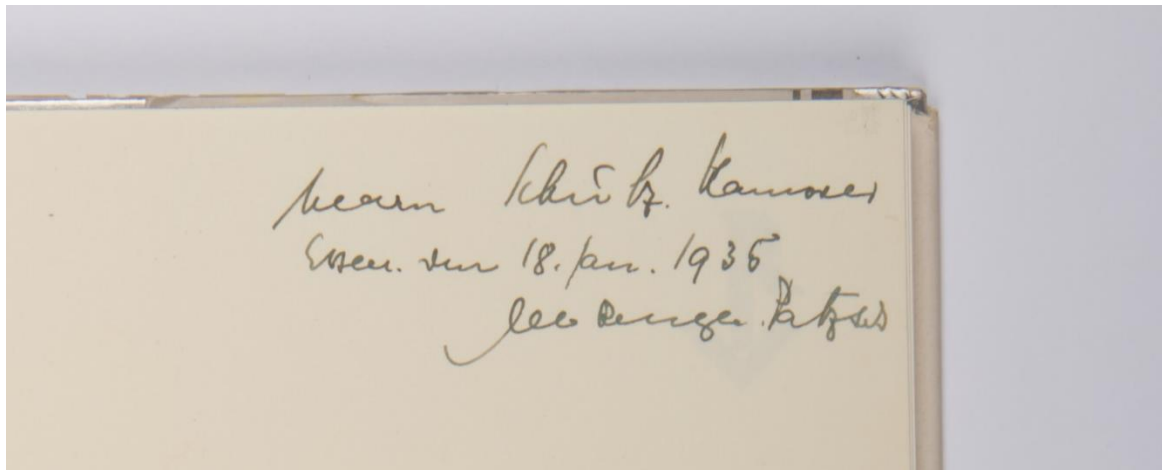 Herrn Schütz. Hannover
Essen. den 18. Jan. 1935
Albert Renger-Patzsch